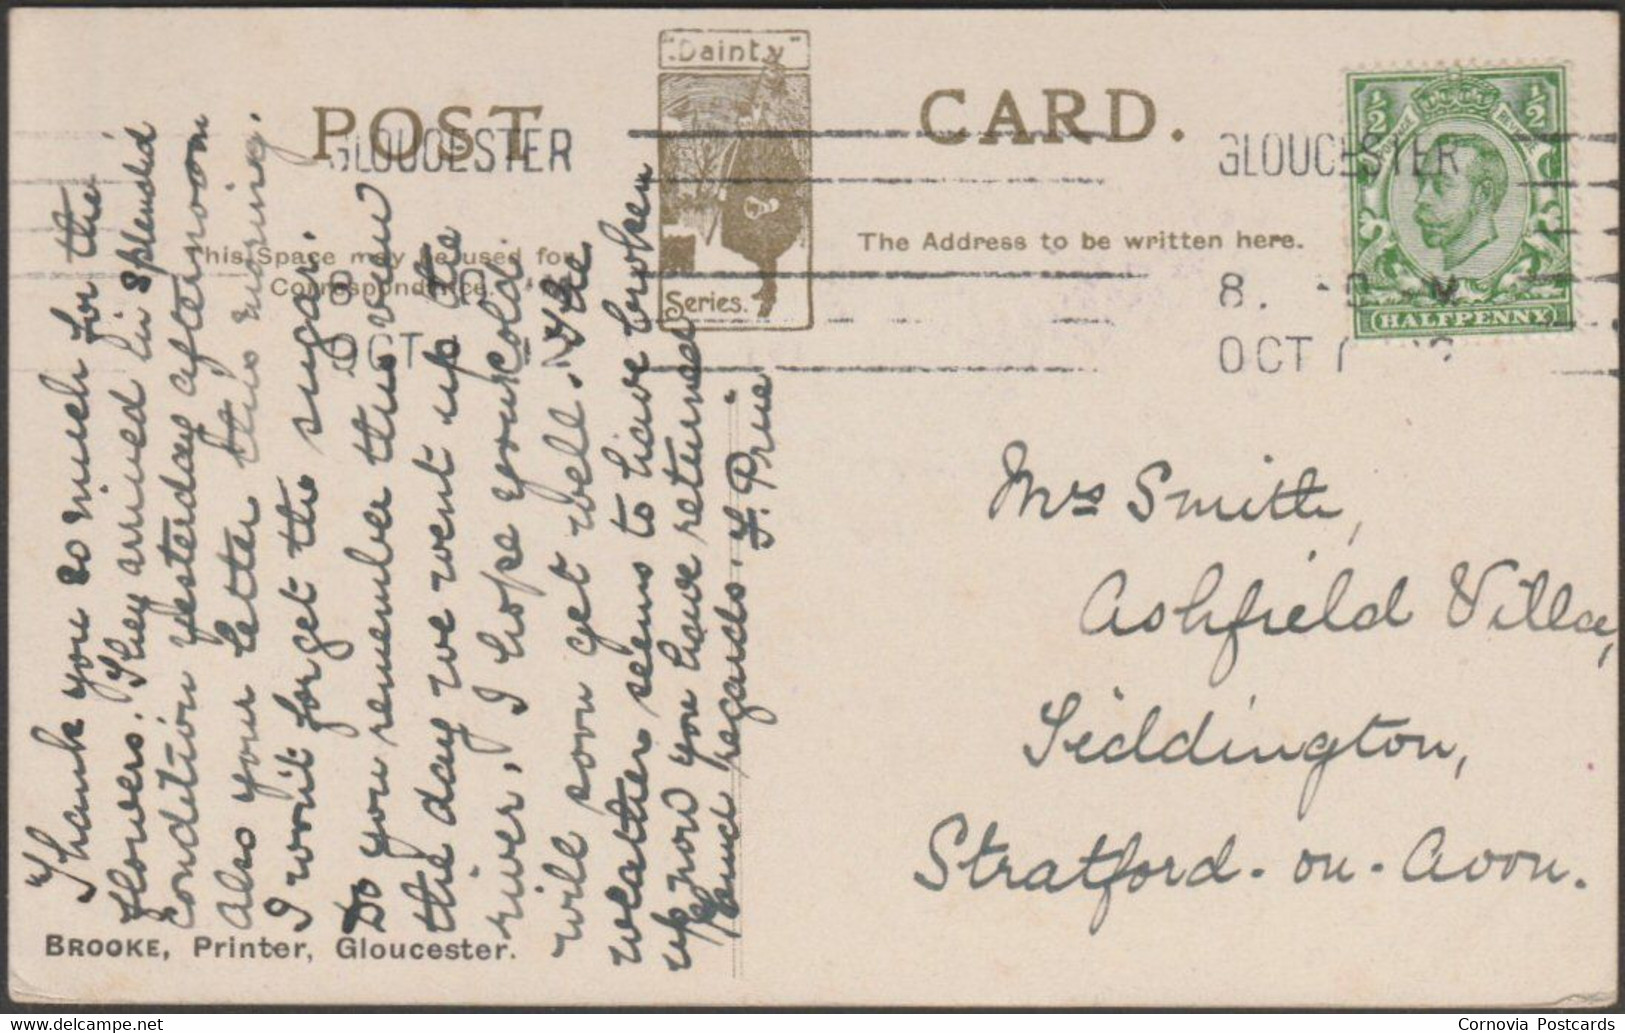 POST CARD.
"Dainty"
Series.
This Space may be used for
Correspondence.
The Address to be written here.
GLOUCESTER
8.
OCT
GLOUCESTER
8.
OCT 1
½ ½
POSTAGE REVENUE
HALFPENNY
Thank you so much for the
flowers. They arrived in splendid
condition yesterday afternoon
also your letter this morning.
I won't forget the sugar.
Do you remember this view
the day we went up the
river. I hope your cold
will soon get well. The
weather seems to have broken
up now you have returned
regards. F. Prue
Mrs Smith,
Ashfield Villa,
Tiddington,
Stratford-on-Avon.
BROOKE, Printer, Gloucester.
Cornovia Postcards